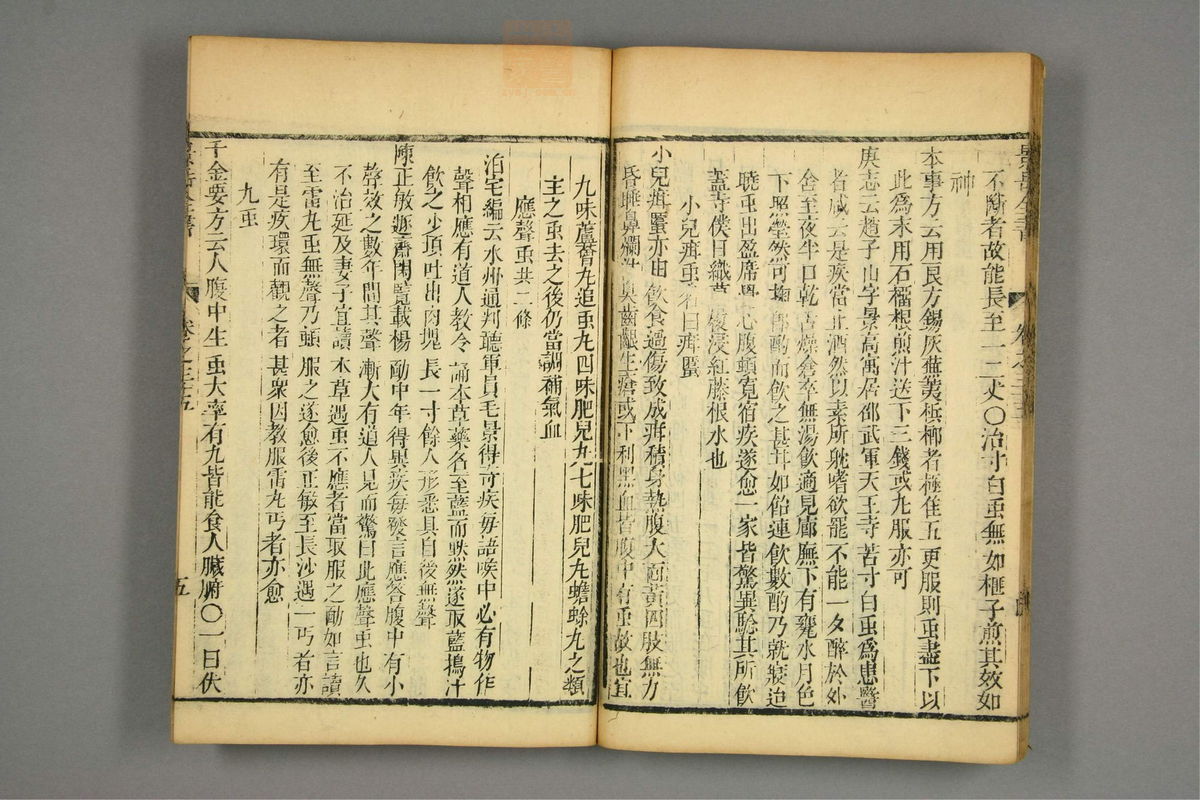 不斷者故能長至一二丈〇治寸白虫無如榧子煎其效如
神
本事方云用良方錫灰蕪荑檳榔者極佳五更服則虫盡下以
此爲末用石榴根煎汁送下三錢或丸服亦可
庚志云趙子山字景高寓居邵武軍天王寺苦寸白虫爲患醫
者戒云是疾當止酒然以素所躭嗜欲罷不能一夕醉於外
舍至夜半口乾舌燥倉卒無湯飲適見廊廡下有甕水月色
下照瑩然可掬卽酌而飲之甚甘如飴連飲數酌乃就寢迨
曉虫出盈席心腹頓寬宿疾遂愈一家皆驚異驗其所飲
蓋寺僕日織草履浸紅藤根水也
小兒疳虫名曰疳䘌
小兒疳䘌亦由飲食過傷致成疳積身熱腹大面黃四肢無力
昏睡鼻爛汁臭齒齦生瘡或下利黑血皆腹中有虫故也宜
九味蘆薈丸追虫丸四味肥兒丸七味肥兒丸蟾蜍丸之類
主之虫去之後仍當調補氣血
應聲虫共二條
泊宅編云永州通判聽軍員毛景得奇疾每語喉中必有物作
聲相應有道人教令誦本草藥名至藍而默然遂取藍搗汁
飲之少頃吐出肉塊長一寸餘人形悉具自後無聲
陳正敏遯齋閑覽載楊勔中年得異疾每發言應答腹中有小
聲效之數年間其聲漸大有道人見而驚曰此應聲虫也久
不治延及妻子宜讀本草遇虫不應者當取服之勔如言讀
至雷丸虫無聲乃頓服之遂愈後正敏至長沙遇一丐者亦
有是疾環而觀之者甚衆因教服雷丸丐者亦愈
九虫
千金要方云人腹中生虫大率有九皆能食人臟腑〇一曰伏
五